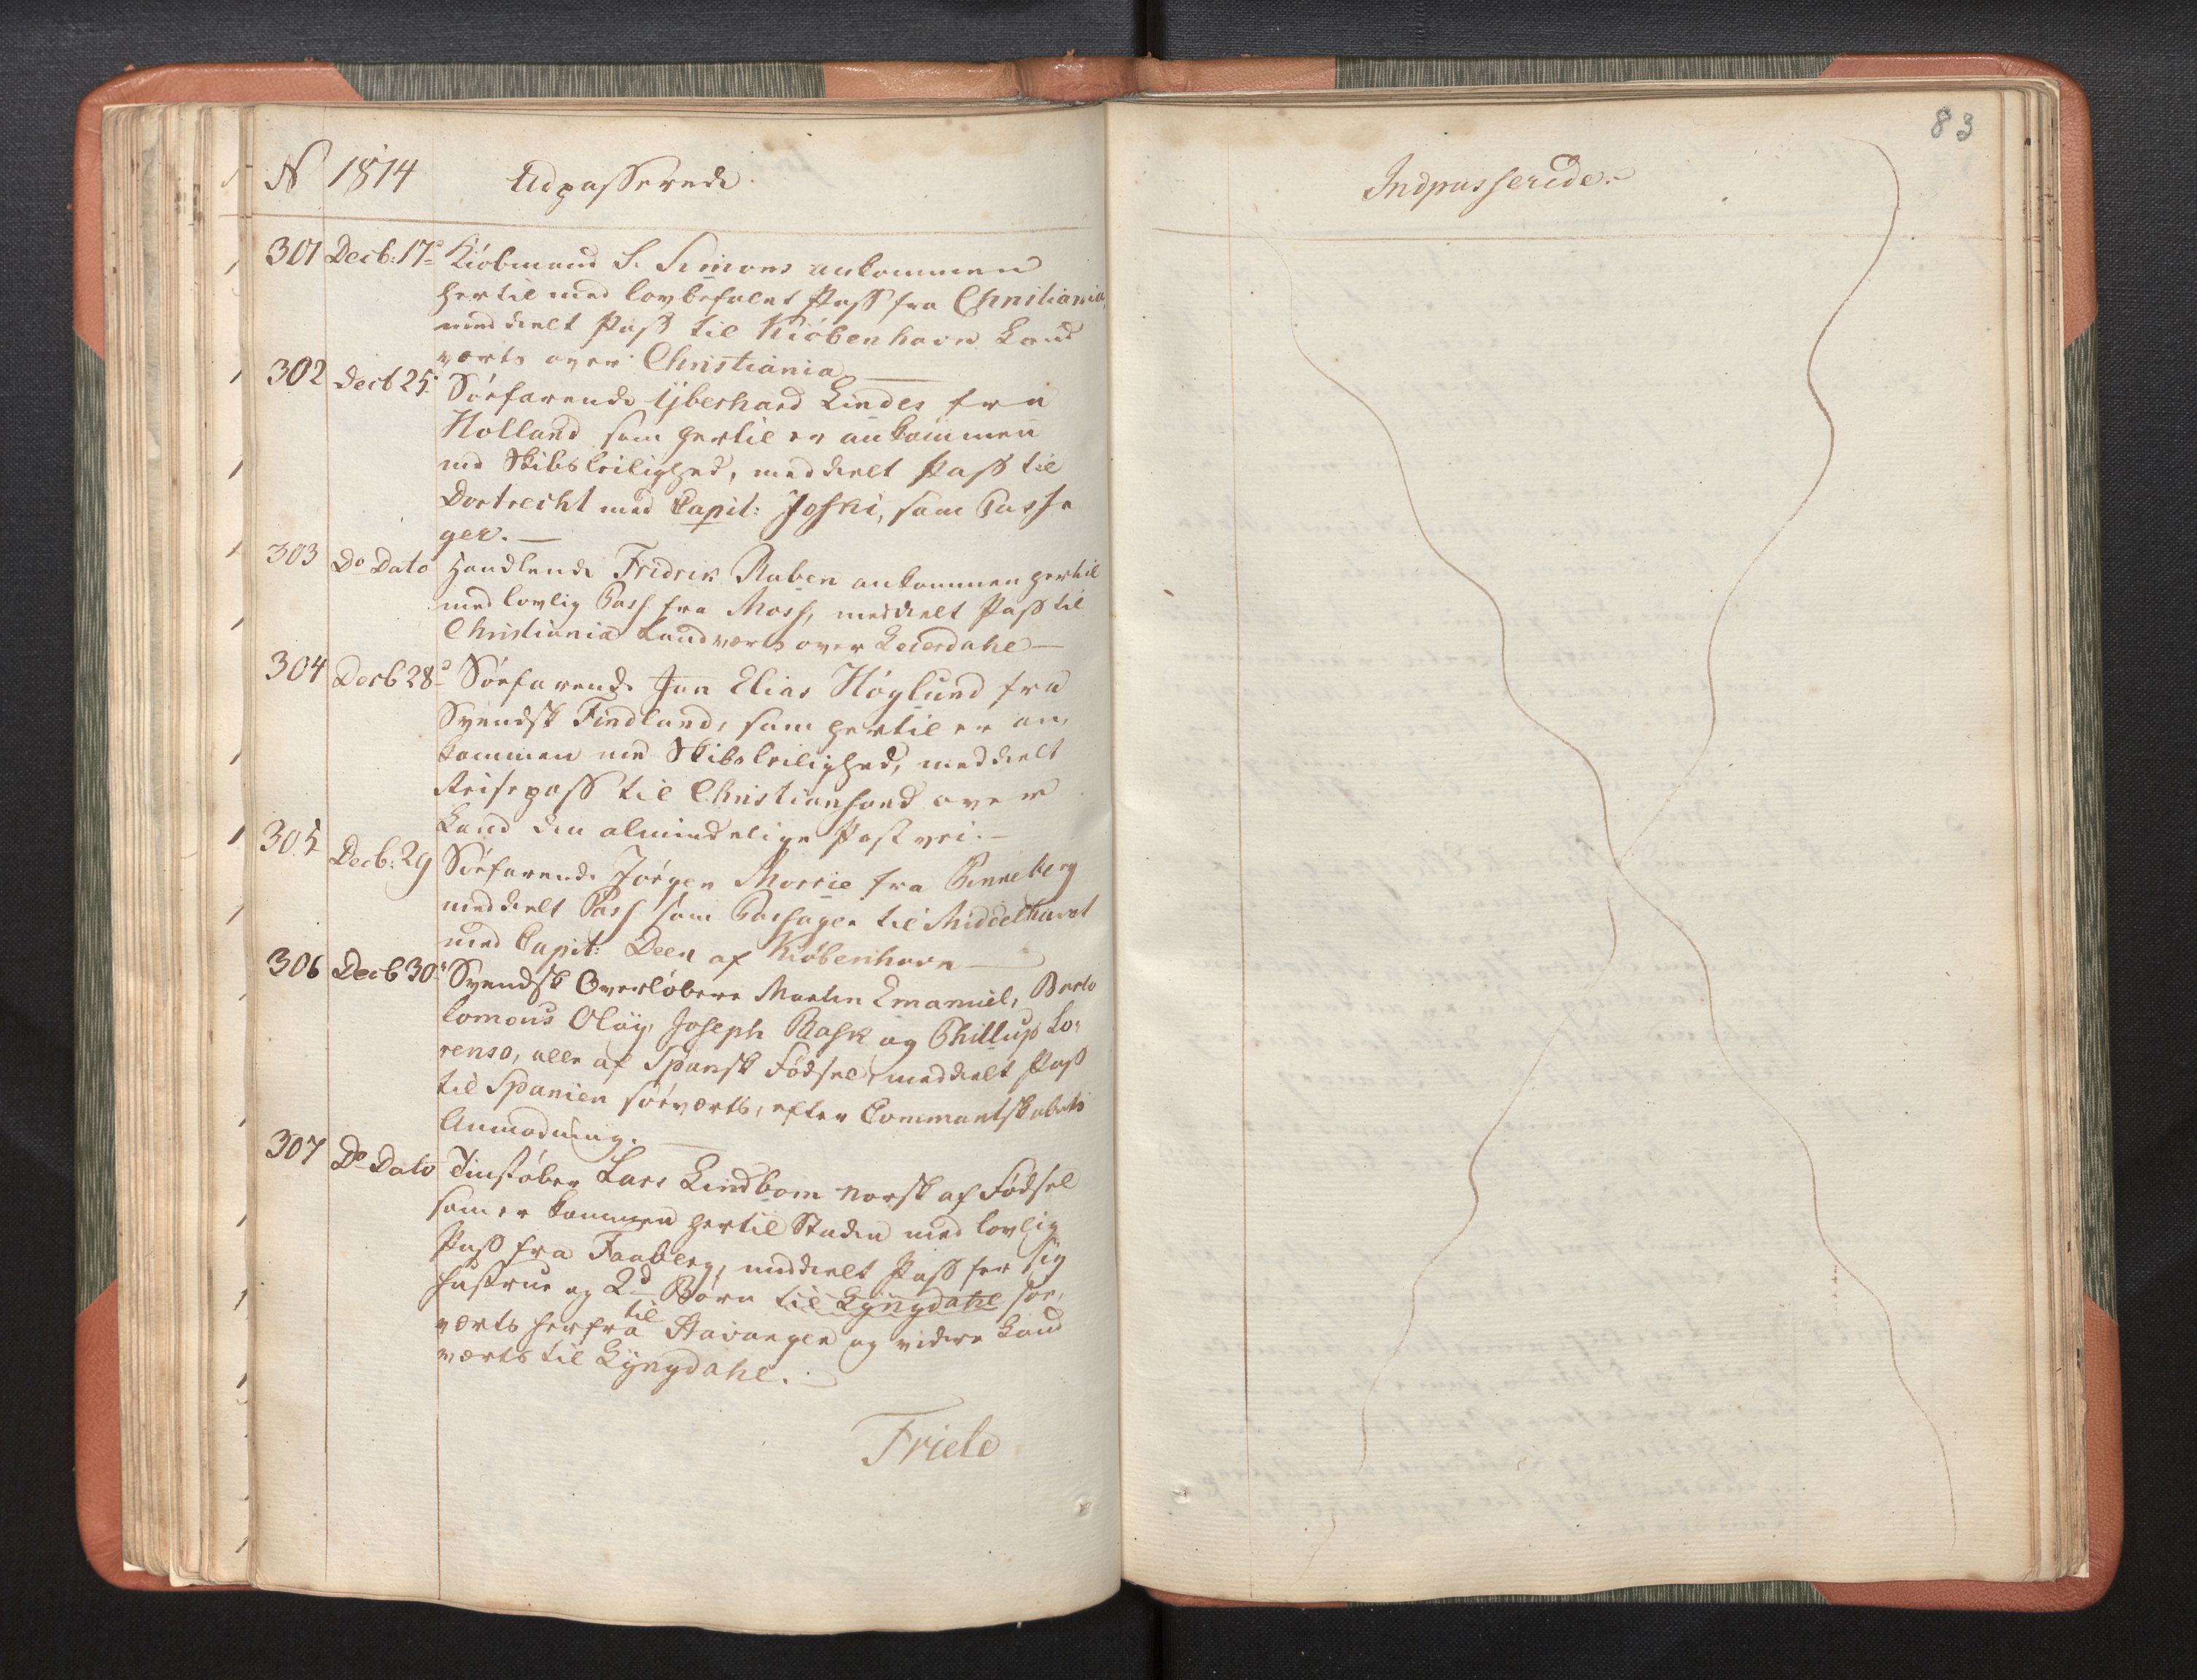 N 1814 Udpasserede.
301 Decb: 17de Kiöbmand S. Simons ankommen
hertil med lovbefalet Pass fra Christiania,
meddeelt Pass til Kiöbenhavn Land
værts over Christiania —
302 Decb 25 Söefarende Ejberhard Lindes fra
Holland som hertil er ankommen
med Skibsleilighed, meddeelt Pass til
Dortrecht med Capit: Joski, som Passa
ger. —
303 Do Dato Handlende Fridrik Ruben ankommen hertil
med lovlig Pass fra Moss, meddeelt Pass til
Christiania Landværts over Leierdahl —
304 Decb 28de Söefarende Jan Elias Höglund fra
Svendsk Findland, som hertil er an,
kommen med Skibsleilighed, meddeelt
Reisepass til Christiansand over
Land den almindelige Postvei. —
305 Decb: 29 Söefarende Jörgen Morrie fra Pinneberg
meddeelt Pass som Passager til Middelhavet
med Capit: Deen af Kiöbenhavn —
306 Decb 30 Svendsk Overlöbere Martin Emanuel, Barto
lomeus Olöy, Joseph Bask og Phillup Lo,
renso, alle af Spansk Födsel, meddeelt Pass
til Spanien söeværts, efter Commantskabets
Anmodning. —
307 Do Dato Tinstöber Lars Lindbom norsk af Födsel
som er kommen hertil Staden med lovlig
Pass fra Faaberg, meddeelt Pass for sig
Hustrue og 2de Börn til Lyngdahl söe,
værts herfra til Stavanger og videre Land
værts til Lyngdahl. —
Friele
83
Indpasserede. —